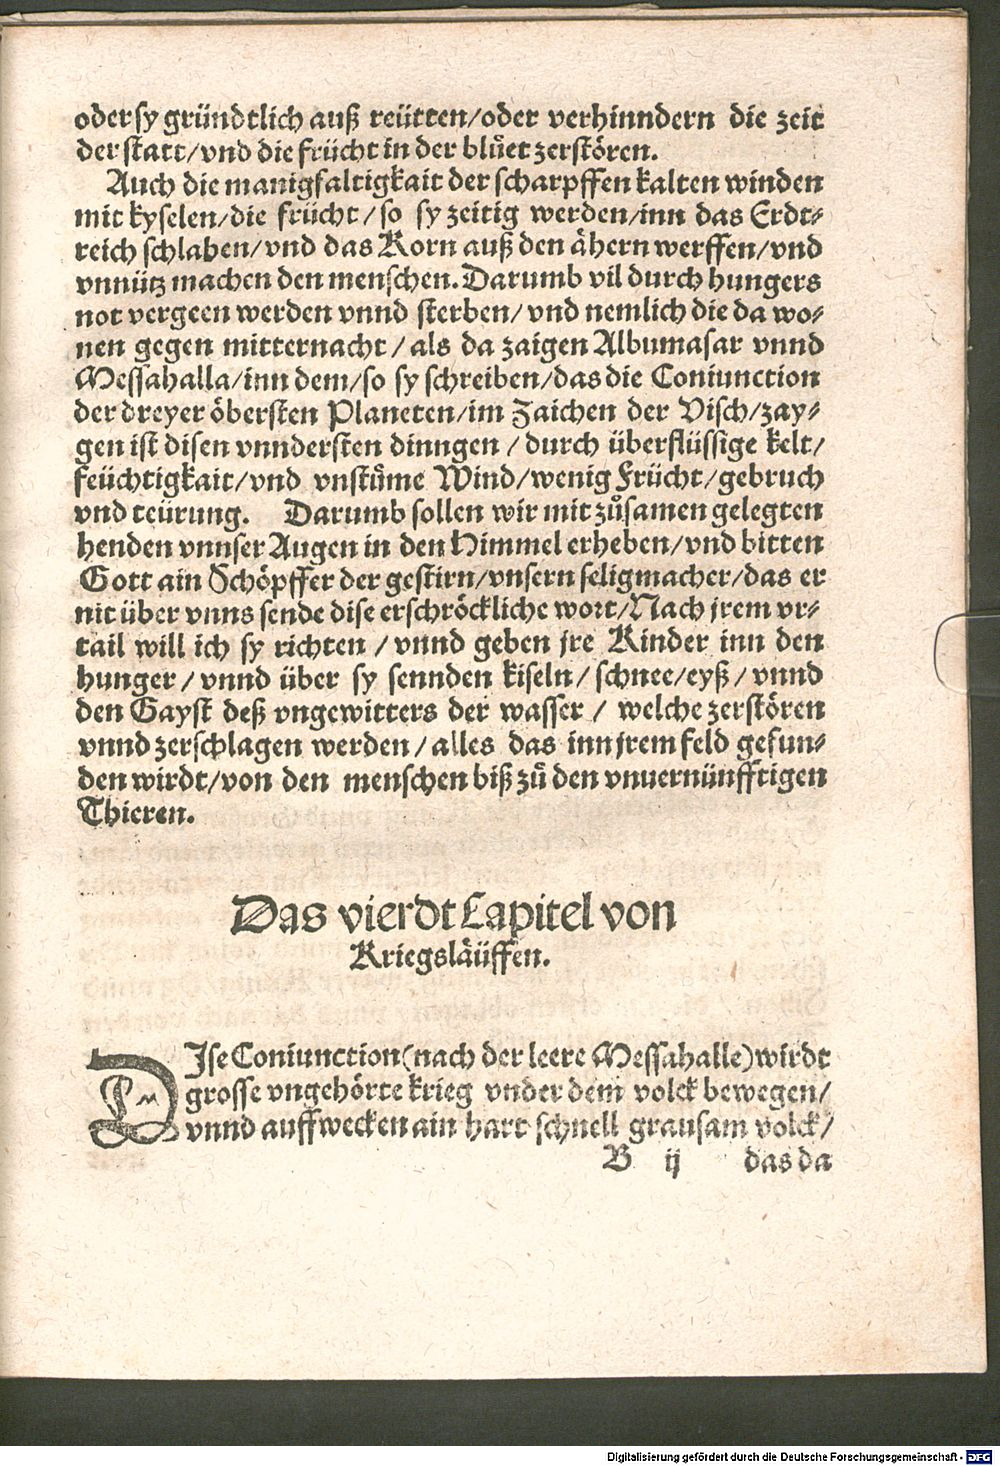 oder sy gründtlich auß reütten/oder verhinndern die zeit
der statt/vnd die frücht in der blůet zerstören.
Auch die manigfaltigkait der scharpffen kalten winden
mit kyselen/die frücht/so sy zeitig werden/inn das Erdt-
reich schlahen/vnd das Korn auß den ähern werffen/vnd
vnnütz machen den menschen. Darumb vil durch hungers
not vergeen werden vnnd sterben/vnd nemlich die da wo-
nen gegen mitternacht/als da zaigen Albumasar vnnd
Messahalla/inn dem/so sy schreiben/das die Coniunction
der dreyer öbersten Planeten/im Zaichen der Visch/zay-
gen ist disen vnndersten dinngen/durch überflüssige kelt/
feüchtigkait/vnd vnstüme Wind/wenig Frücht/gebruch
vnd teürung. Darumb sollen wir mit zůsamen gelegten
henden vnnser Augen in den Himmel erheben/vnd bitten
Gott ain Schöpffer der gestirn/vnsern seligmacher/das er
nit über vnns sende dise erschröckliche wort/Nach jrem vr-
tail will ich sy richten/vnnd geben jre Kinder inn den
hunger/vnnd über sy sennden kiseln/schnee/eyß/vnnd
den Gayst deß vngewitters der wasser/welche zerstören
vnnd zerschlagen werden/alles das inn jrem feld gefun-
den wirdt/von den menschen biß zů den vnuernünfftigen
Thieren.
Das vierdt Capitel von
Kriegsläüffen.
DJse Coniunction (nach der leere Messahalle) wirdt
grosse vngehörte krieg vnder dem volck bewegen/
vnnd auffwecken ain hart schnell grausam volck/
B ij das da
Digitalisierung gefördert durch die Deutsche Forschungsgemeinschaft - DFG